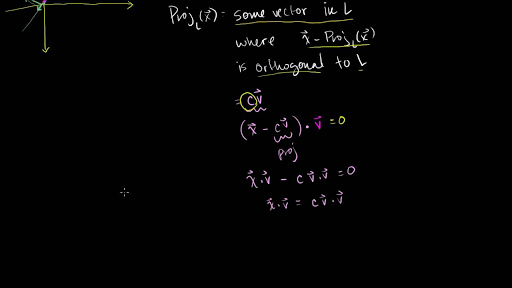 Proj_L(x⃗) = some vector in L
where x⃗ - Proj_L(x⃗)
is orthogonal to L
= cv⃗
(x⃗ - cv⃗) · v⃗ = 0
proj
x⃗ · v⃗ - c v⃗ · v⃗ = 0
x⃗ · v⃗ = c v⃗ · v⃗